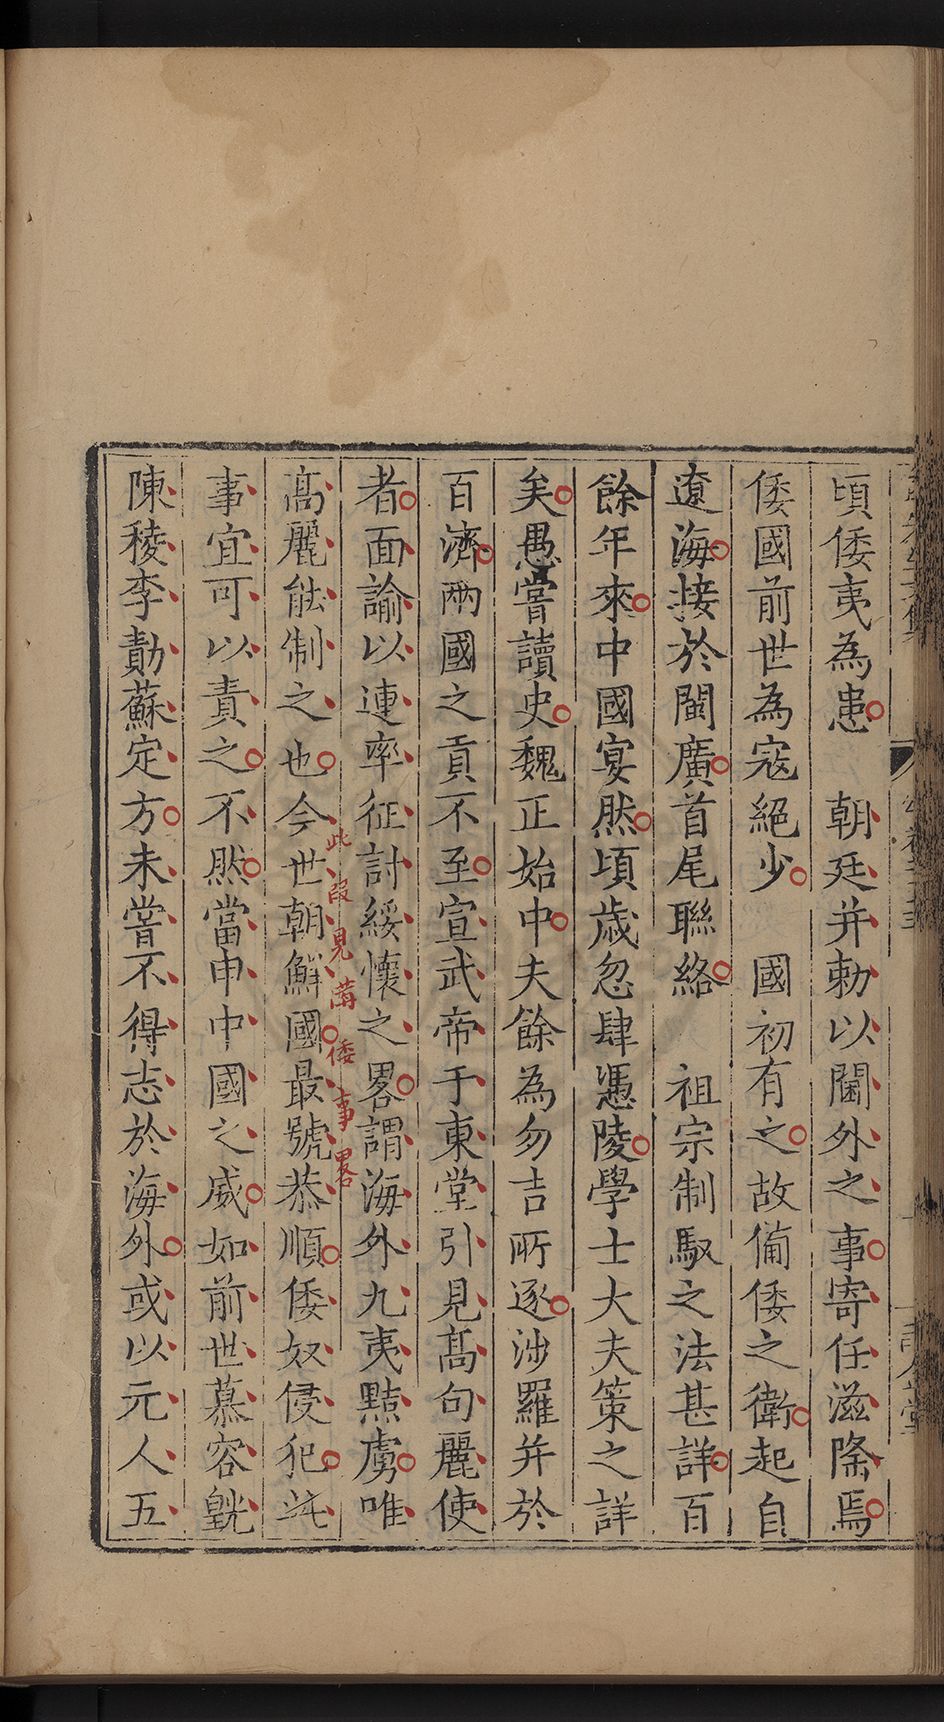 頃倭夷為患　朝廷并勅以閫外之事寄任滋隆焉
倭國前世為寇絕少　國初有之故備倭之衛起自
遼海接於閩廣首尾聯絡　祖宗制馭之法甚詳百
餘年來中國宴然頃歲忽肆憑陵學士大夫策之詳
矣愚嘗讀史魏正始中夫餘為勿吉所逐涉羅并於
百濟兩國之貢不至宣武帝于東堂引見髙句麗使
者面諭以連率征討綏懷之畧謂海外九夷黠虜唯
髙麗能制之也今世朝鮮國最號恭順倭奴侵犯
此段見萹倭事畧
事宜可以責之不然當申中國之威如前世慕容皝
陳稜李勣蘇定方未嘗不得志於海外或以元人五